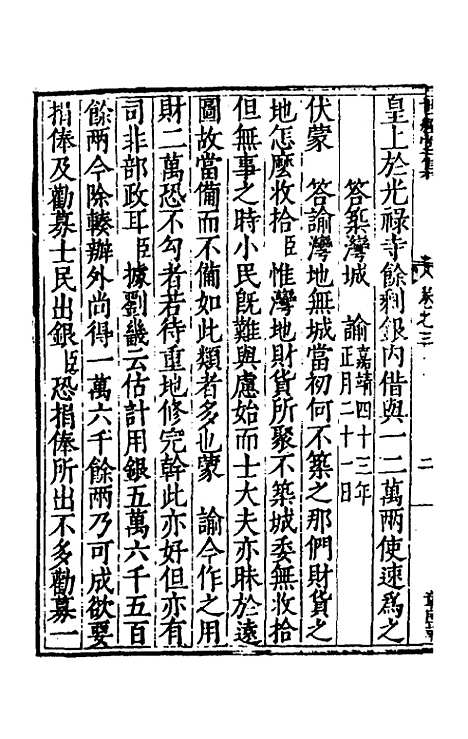 皇上於光祿寺餘剩銀內借與一二萬兩使速爲之
答築灣城　諭嘉靖四十三年正月二十一日
伏蒙　答諭灣地無城當初何不築之那們財貨之
地怎麽收拾臣惟灣地財貨所聚不築城委無收拾
但無事之時小民旣難與慮始而士大夫亦昧於遠
圖故當備而不備如此類者多也蒙　諭今作之用
財二萬恐不勾者若待重地修完幹此亦好但亦有
司非部政耳臣據劉畿云估計用銀五萬六千五百
餘兩今除輳辦外尚得一萬六千餘兩乃可成欲要
捐俸及勸募士民出銀臣恐捐俸所出不多勸募一
卷之三
二